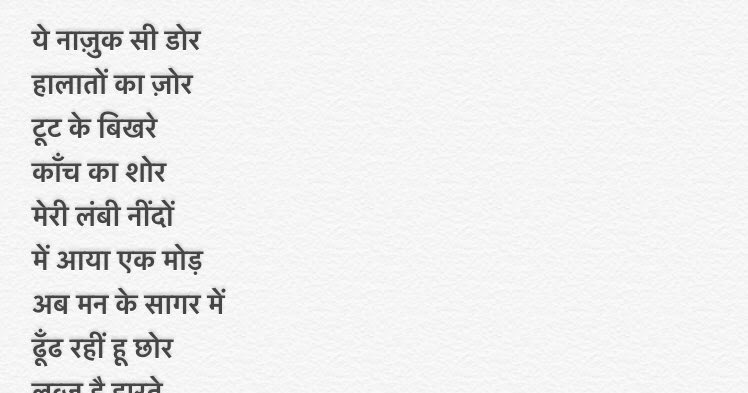 ये नाज़ुक सी डोर
हालातों का ज़ोर
टूट के बिखरे
काँच का शोर
मेरी लंबी नींदों
में आया एक मोड़
अब मन के सागर में
ढूँढ रहीं हू छोर